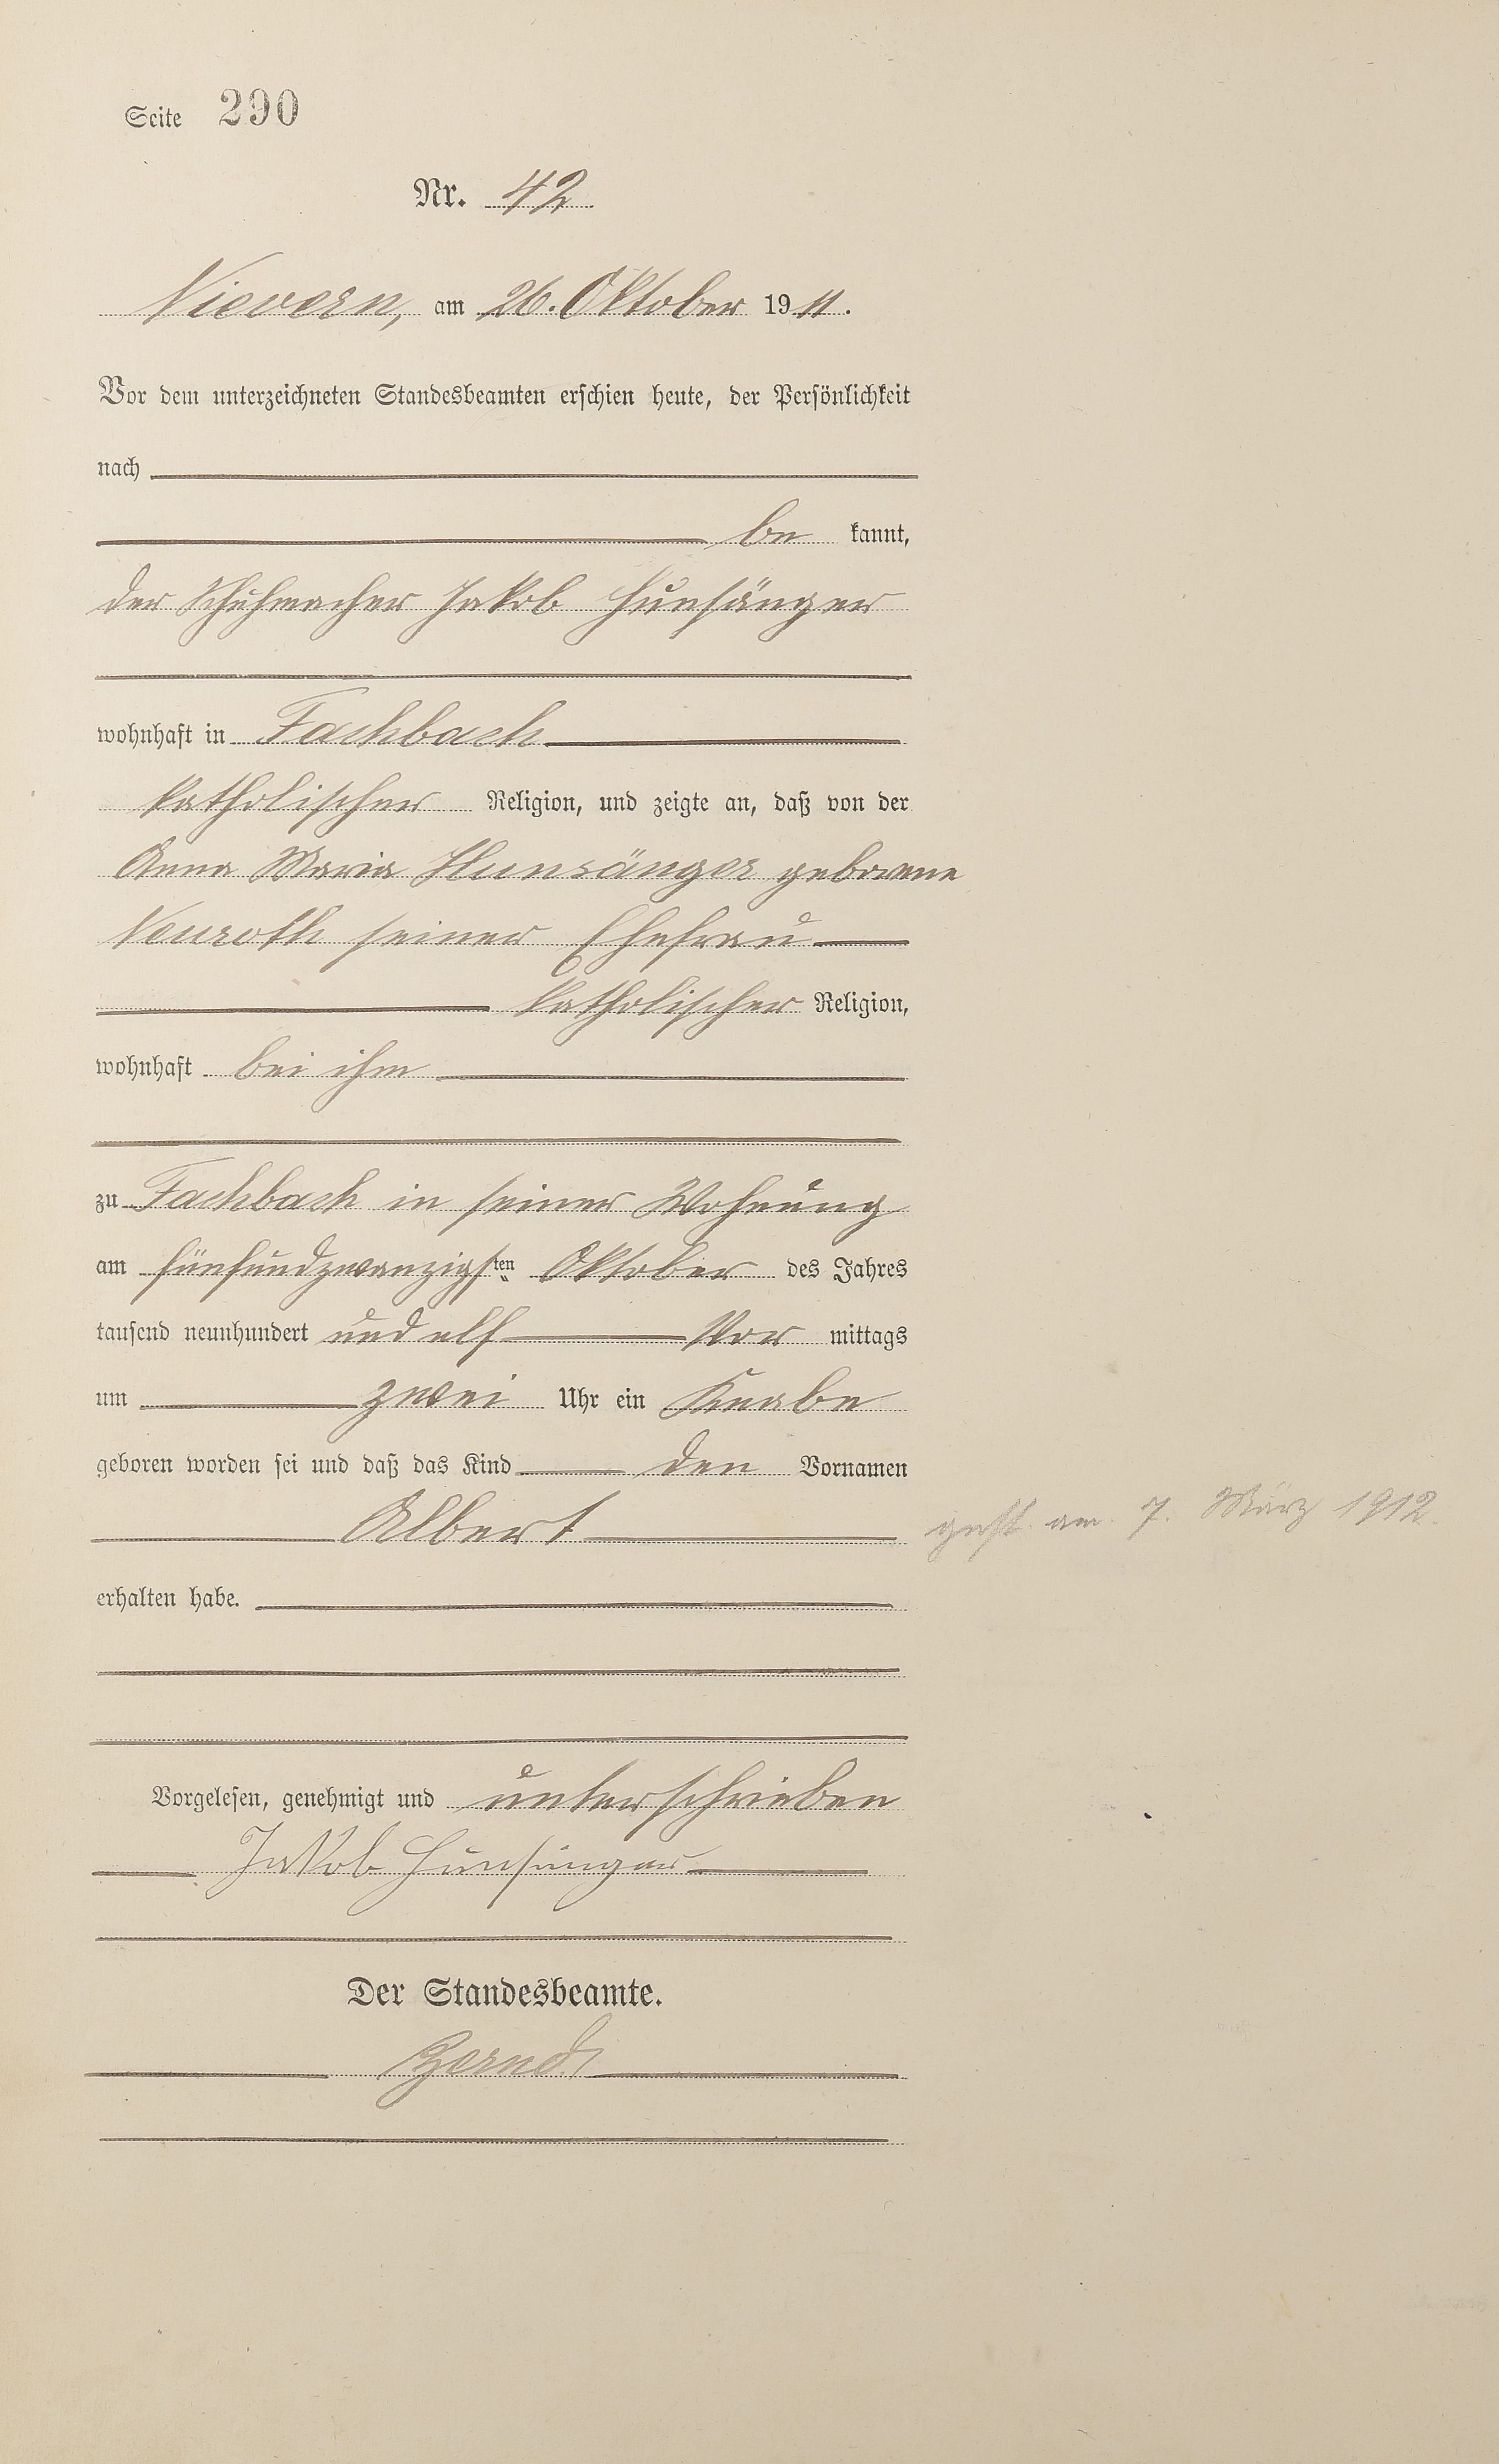 Seite 290
Nr. 42
Nievern, am 26. Oktober 1911.
Vor dem unterzeichneten Standesbeamten erschien heute, der Persönlichkeit
nach
be kannt,
der Schuhmacher Jakob Hunsänger
wohnhaft in Fachbach
katholischer Religion, und zeigte an, daß von der
Anna Maria Hunsänger geborene
Neuroth seiner Ehefrau
katholischer Religion,
wohnhaft bei ihm
zu Fachbach in seiner Wohnung
am fünfundzwanzigsten Oktober des Jahres
tausend neunhundert und elf Vor mittags
um zwei Uhr ein Knabe
geboren worden sei und daß das Kind den Vornamen
Albert
gest. am 7. März 1912.
erhalten habe.
Vorgelesen, genehmigt und unterschrieben
Jakob Hunsänger
Der Standesbeamte.